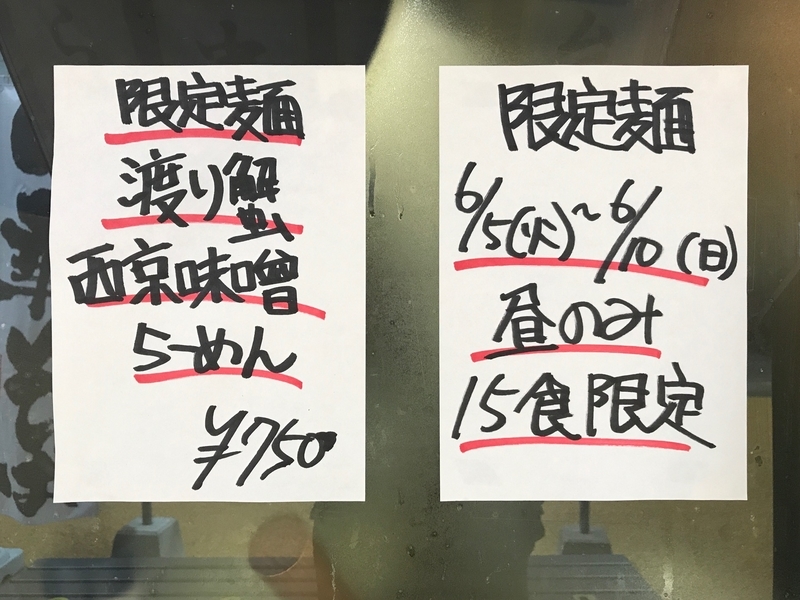 限定麺
渡り蟹
西京味噌
らーめん
¥750
限定麺
6/5(火)~6/10(日)
昼のみ
15食限定